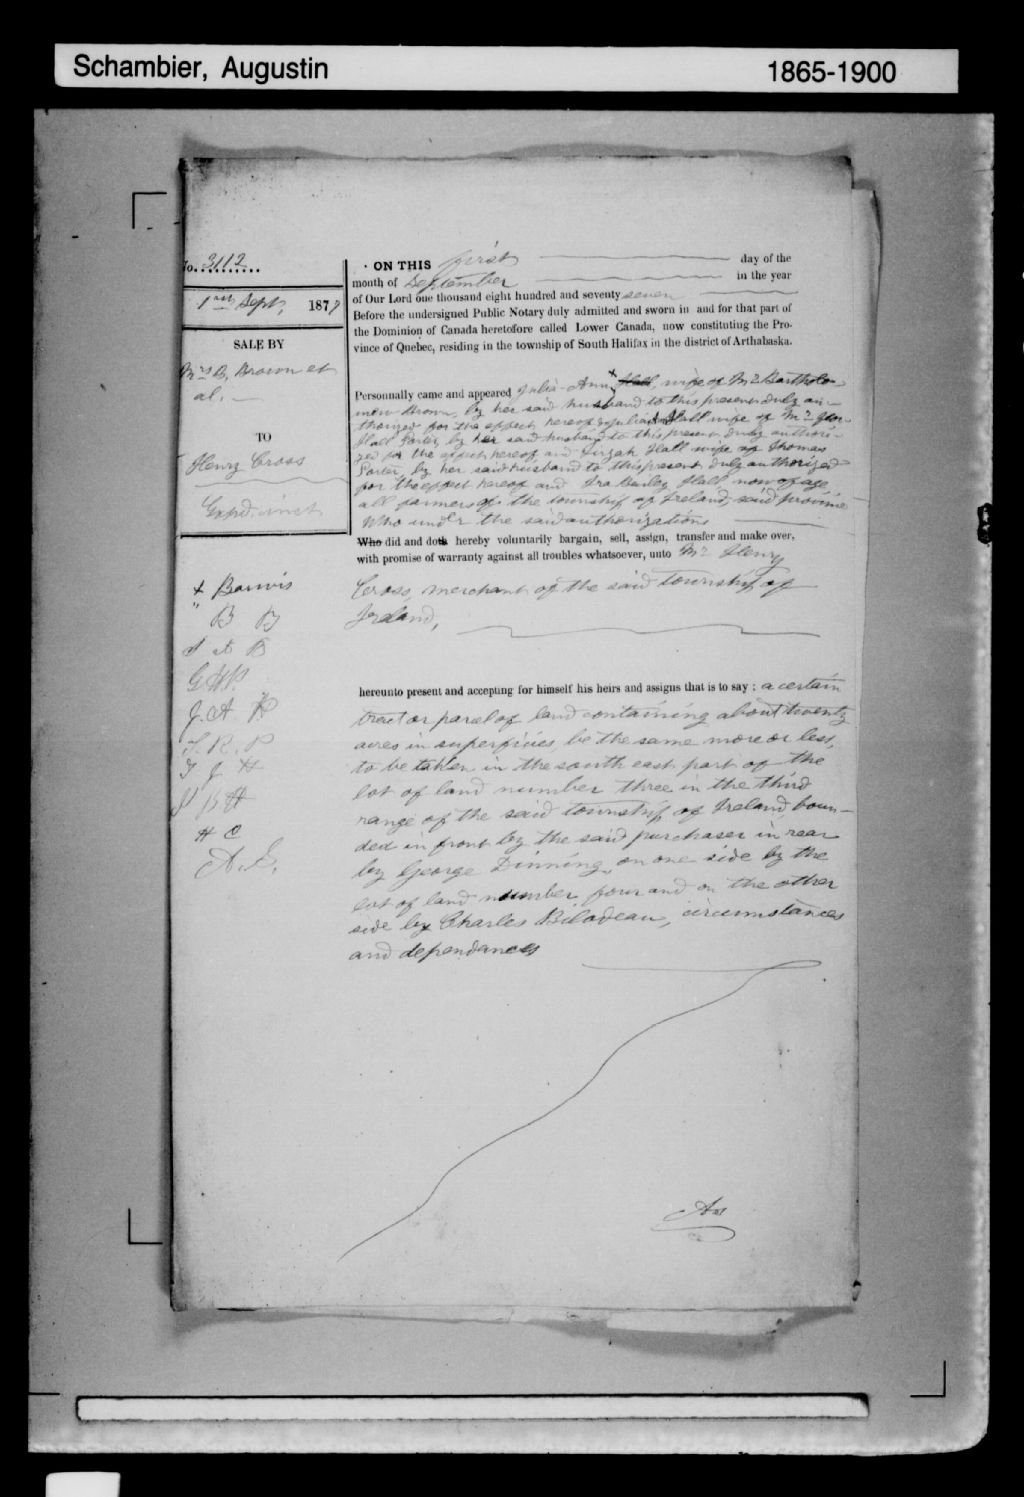 Schambier, Augustin
1865-1900
No. 3112
1er Sept, 1877
SALE BY
Mrs B, Brown et
al. —
TO
Henry Cross
Exped.
x Barwis
" B B
J A B
G H P.
J. A P
T. R. P
T J H
I B H
H C
A. S.
ON THIS first day of the
month of September in the year
of Our Lord one thousand eight hundred and seventy seven
Before the undersigned Public Notary duly admitted and sworn in and for that part of
the Dominion of Canada heretoffore called Lower Canada, now constituting the Pro-
vince of Quebec, residing in the township of South Halifax in the district of Arthabaska.
Personnally came and appeared Julia-Ann x Hall, wife of Mr Bartholo-
mew Brown, by her said husband to this present duly au-
thorized for the effect hereof Hall wife of Mr
Hall Porter by her said husband to this present duly authori-
zed for the effect hereof and Tirzah Hall wife of Thomas
Porter, by her said husband to this present duly authorized
for the effect hereof and Ira Hall now of age
all farmers of the township of Ireland, said province
Who under the said authorizations
Who did and doth hereby voluntarily bargain, sell, assign, transfer and make over,
with promise of warranty against all troubles whatsoever, unto Mr Henry
Cross, merchant of the said township of
Ireland,
hereunto present and accepting for himself his heirs and assigns that is to say : a certain
tract or parcel of land containing about twenty
acres in superficies, be the same more or less,
to be taken in the south east part of the
lot of land number three in the third
range of the said township of Ireland, boun-
ded in front by the said purchaser in rear
by George Dinning, on one side by the
lot of land number four and on the other
side by Charles Bilodeau, circumstances
and dependances
AS